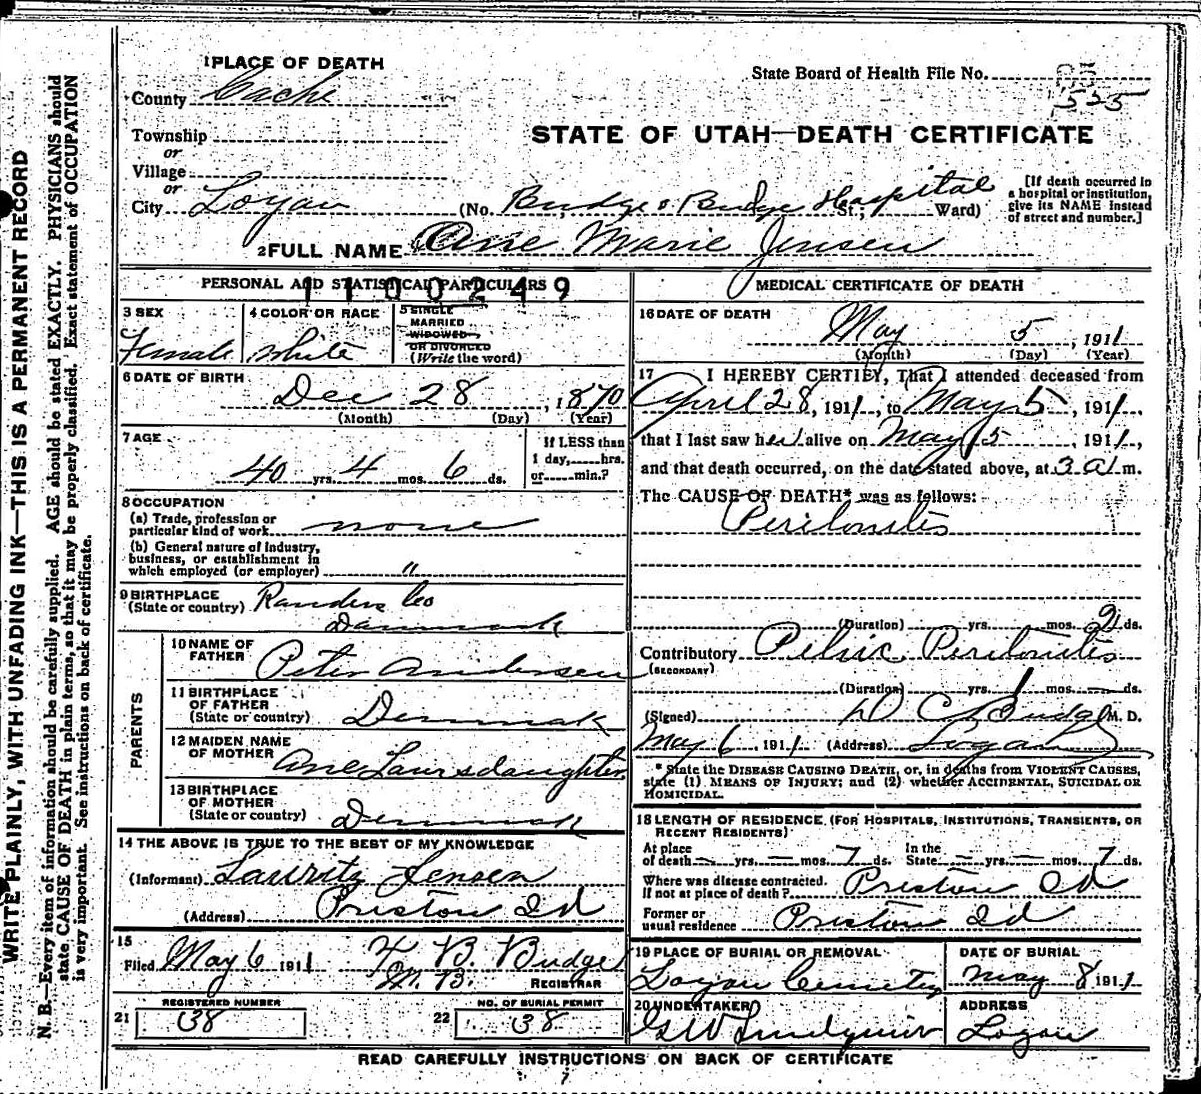 1 PLACE OF DEATH
County Cache
State Board of Health File No.
535
STATE OF UTAH—DEATH CERTIFICATE
Township
or
Village
or
City Logan (No. Budge & Budge Hospital St.; Ward)
[If death occurred in
a hospital or institution,
give its NAME instead
of street and number.]
2 FULL NAME Ane Marie Jensen
PERSONAL AND STATISTICAL PARTICULARS
1100249
3 SEX
Female
4 COLOR OR RACE
white
5 SINGLE
MARRIED
WIDOWED
OR DIVORCED
(Write the word)
6 DATE OF BIRTH
Dec 28, 1870
(Month) (Day) (Year)
7 AGE
40 yrs. 4 mos. 6 ds.
If LESS than
1 day, hrs.
or min.?
8 OCCUPATION
(a) Trade, profession or
particular kind of work none
(b) General nature of industry,
business, or establishment in
which employed (or employer) "
9 BIRTHPLACE
(State or country) Randers Co
Danmark
PARENTS
10 NAME OF
FATHER Peter Andersen
11 BIRTHPLACE
OF FATHER
(State or country) Denmak
12 MAIDEN NAME
OF MOTHER Ane Laursdaughter
13 BIRTHPLACE
OF MOTHER
(State or country) Denmak
14 THE ABOVE IS TRUE TO THE BEST OF MY KNOWLEDGE
(Informant) Lauritz Jensen
(Address) Preston Id
15
Filed May 6 1911 B. Budge
REGISTRAR
REGISTERED NUMBER
21 38
NO. OF BURIAL PERMIT
22 38
MEDICAL CERTIFICATE OF DEATH
16 DATE OF DEATH
May 5, 1911
(Month) (Day) (Year)
17 I HEREBY CERTIFY, That I attended deceased from
April 28, 1911, to May 5, 1911,
that I last saw her alive on May 5, 1911,
and that death occurred, on the date stated above, at 3 a.m.
The CAUSE OF DEATH* was as follows:
Peritonitis
(Duration) yrs. mos. 2 ds.
Contributory Pelvic Peritonitis
(SECONDARY)
(Duration) yrs. 1 mos. — ds.
(Signed) D C Budge M. D.
May 6, 1911 (Address) Logan
* State the DISEASE CAUSING DEATH, or, in deaths from VIOLENT CAUSES,
state (1) MEANS OF INJURY; and (2) whether ACCIDENTAL, SUICIDAL OR
HOMICIDAL.
18 LENGTH OF RESIDENCE (FOR HOSPITALS, INSTITUTIONS, TRANSIENTS, OR
RECENT RESIDENTS)
At place
of death — yrs. — mos. 7 ds.
In the
State — yrs. — mos. 7 ds.
Where was disease contracted.
If not at place of death? Preston Id
Former or
usual residence Preston Id
19 PLACE OF BURIAL OR REMOVAL
Logan Cemetery
DATE OF BURIAL
May 8 1911
20 UNDERTAKER
ADDRESS
Logan
READ CAREFULLY INSTRUCTIONS ON BACK OF CERTIFICATE
WRITE PLAINLY, WITH UNFADING INK—THIS IS A PERMANENT RECORD
N. B.—Every item of information should be carefully supplied. AGE should be stated EXACTLY. PHYSICIANS should
state CAUSE OF DEATH in plain terms, so that it may be properly classified. Exact statement of OCCUPATION
is very important. See instructions on back of certificate.